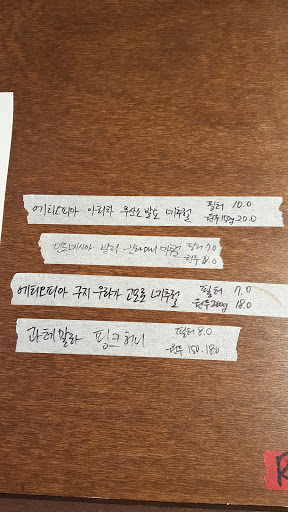 에티오피아 아리차 무산소 발효 내추럴 필터 10.0
원두 150g 20.0
인도네시아 발리 내추럴 필터 7.0
원두 8.0
에티오피아 구지 우라가 고모로 내추럴 필터 7.0
원두 200g 18.0
과테말라 핑크허니 필터 8.0
원두 150. 18.0
R